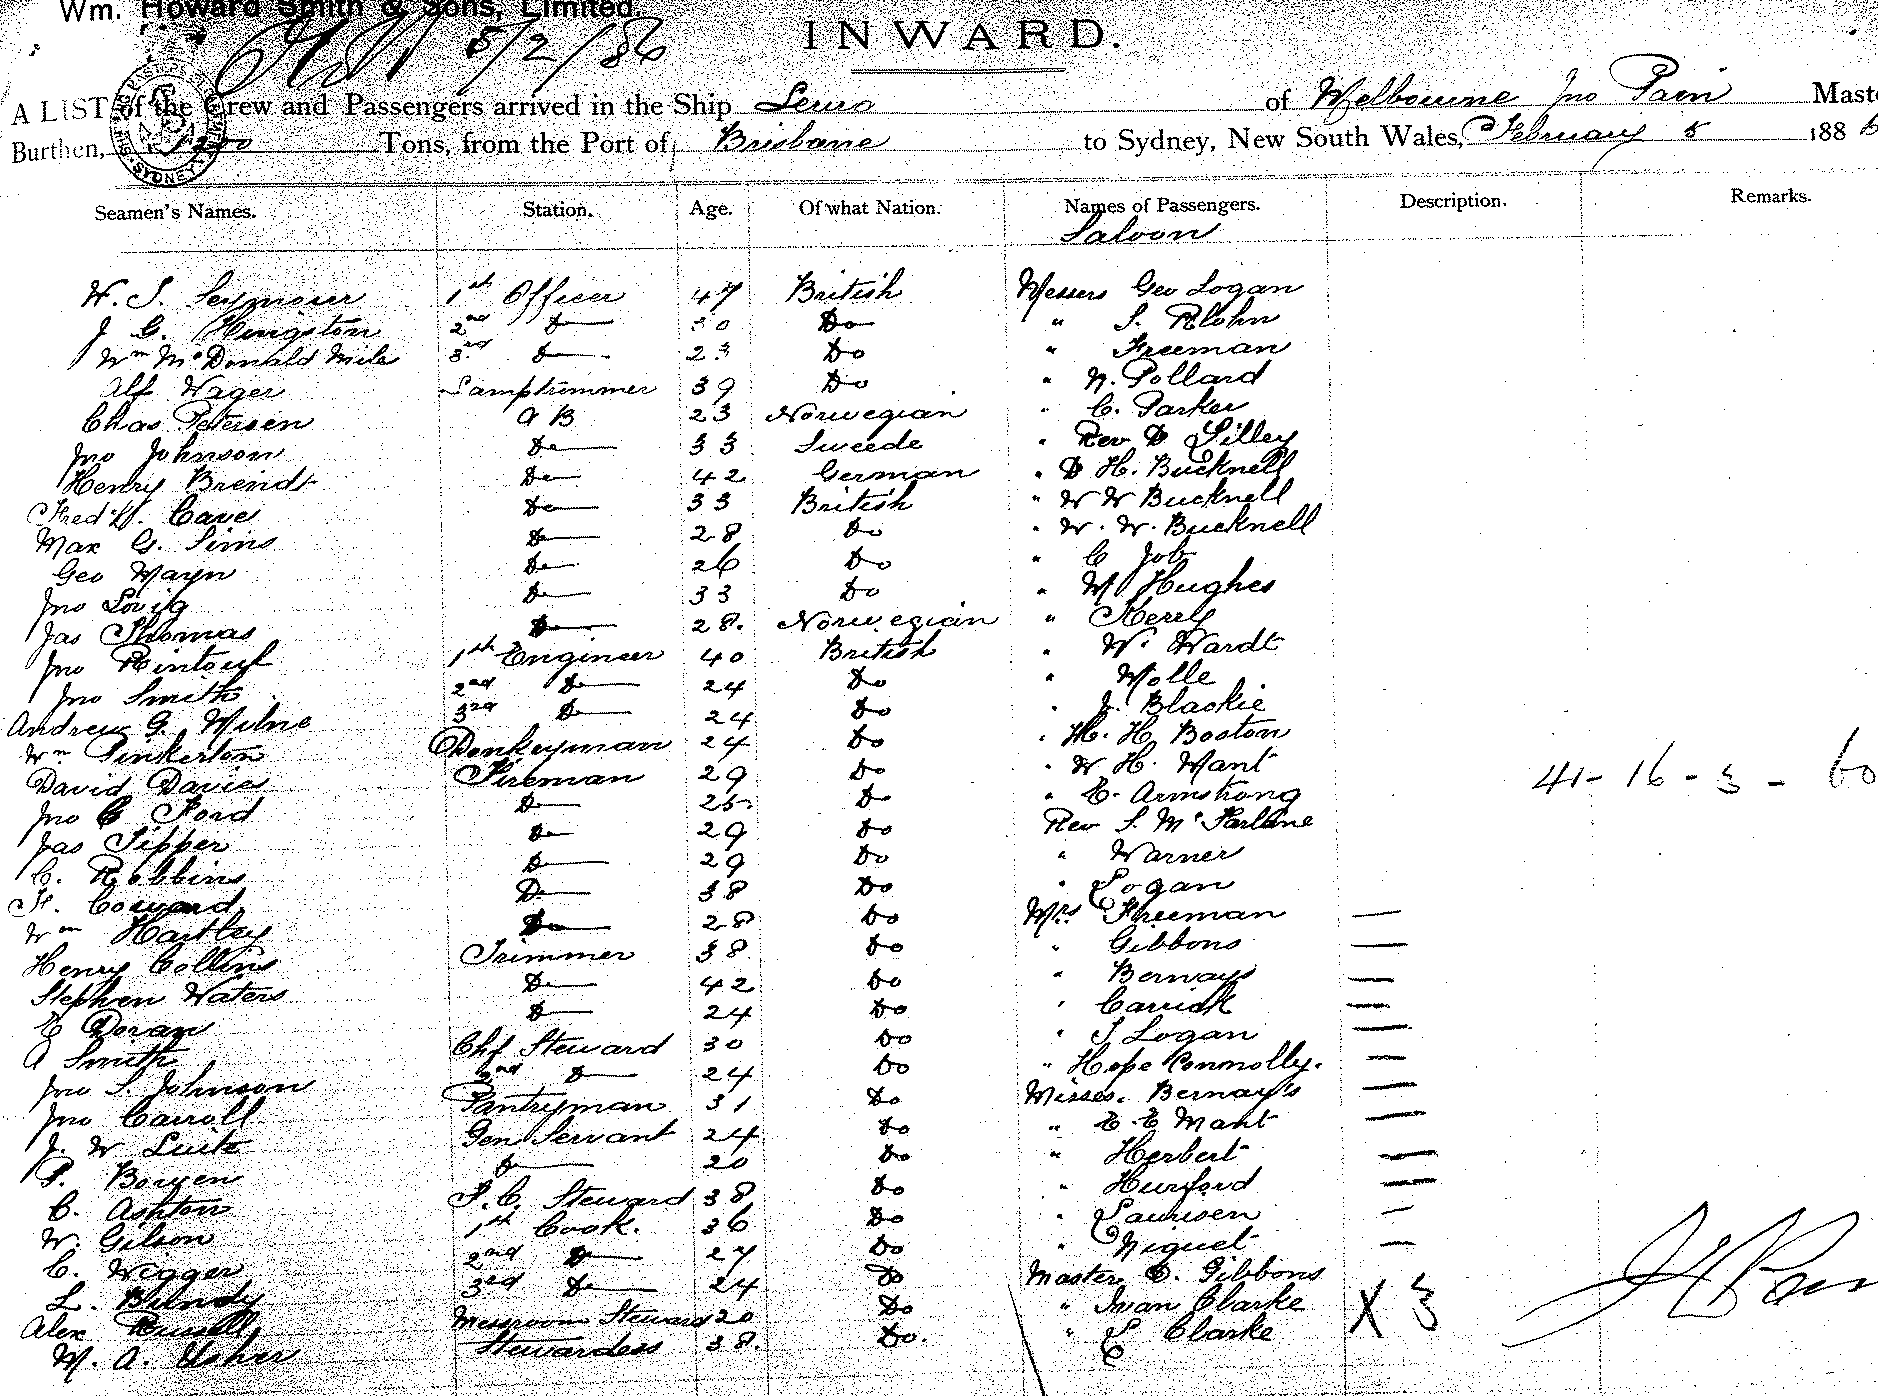 Wm. Howard Smith & Sons, Limited.
5/2/86
INWARD.
A LIST of the Crew and Passengers arrived in the Ship Leura of Melbourne Jno Pain Maste
Burthen, 1200 Tons, from the Port of Brisbane to Sydney, New South Wales, February 5 1886
Seamen's Names. Station. Age. Of what Nation. Names of Passengers. Description. Remarks.
Saloon
W. S. Seymour 1st Officer 47 British Messrs Geo Logan
J G. Hingston 2nd Do 30 Do " S. Rlohn
Wm McDonald Mile 3rd Do 23 Do " Freeman
Alf Wager Lamptrimmer 39 Do " N. Pollard
Chas Petersen A B 23 Norwegian " C. Parker
Jno Johnson Do 33 Sweede " Rev D Lilley
Henry Brendt Do 42 German " D H. Bucknell
Fred W. Cave Do 33 British " W W Bucknell
Max G. Sims Do 28 Do " W. W. Bucknell
Geo Wayn Do 26 Do " C Job
Jno Do 33 Do " W Hughes
Jas Thomas Do 28. Norwegian "
Jno Rintoul 1st Engineer 40 British " W. Wardt
Jno Smith 2nd Do 24 Do " Wolle
Andrew G. Milne 3rd Do 24 Do " J. Blaskie
Wm Pinkerton Donkeyman 24 Do " H. H Boston
David Davis Fireman 29 Do " W H. Want 41 - 16 - 3 - 60
Jno C Ford Do 25 Do " E. Armstrong
Jas Tipper Do 29 Do Rev S. McFarlane
C. Robbins Do 29 Do " Warner
F. Coward Do 38 Do " Logan
Wm Hartley Do 28 Do Mrs Freeman —
Henry Collins Trimmer 38 Do " Gibbons —
Stephen Waters Do 42 Do " Bernays —
E Doran Do 24 Do " Carrick —
A Smith Chf Steward 30 Do " J Logan —
Jno S. Johnson 2nd Do 24 Do " Hope Connolly. —
Jno Carroll Pantryman 31 Do Misses. Bernay's —
J. W Luitz Gen Servant 24 Do " E. E Mant —
P. Bowen Do 20 Do " Herbert —
C. Ashton F. C. Steward 38 Do " Hurford —
W. Gilson 1st Cook. 36 Do " Laurisen —
C. Wigger 2nd Do 27 Do " Niquet —
L. Bundy 3rd Do 24 Do Master C. Gibbons
Alex Russell Messroom Steward 20 Do " Ivan Clarke X 3
M. A. Usher Stewardess 38. Do. " L Clarke